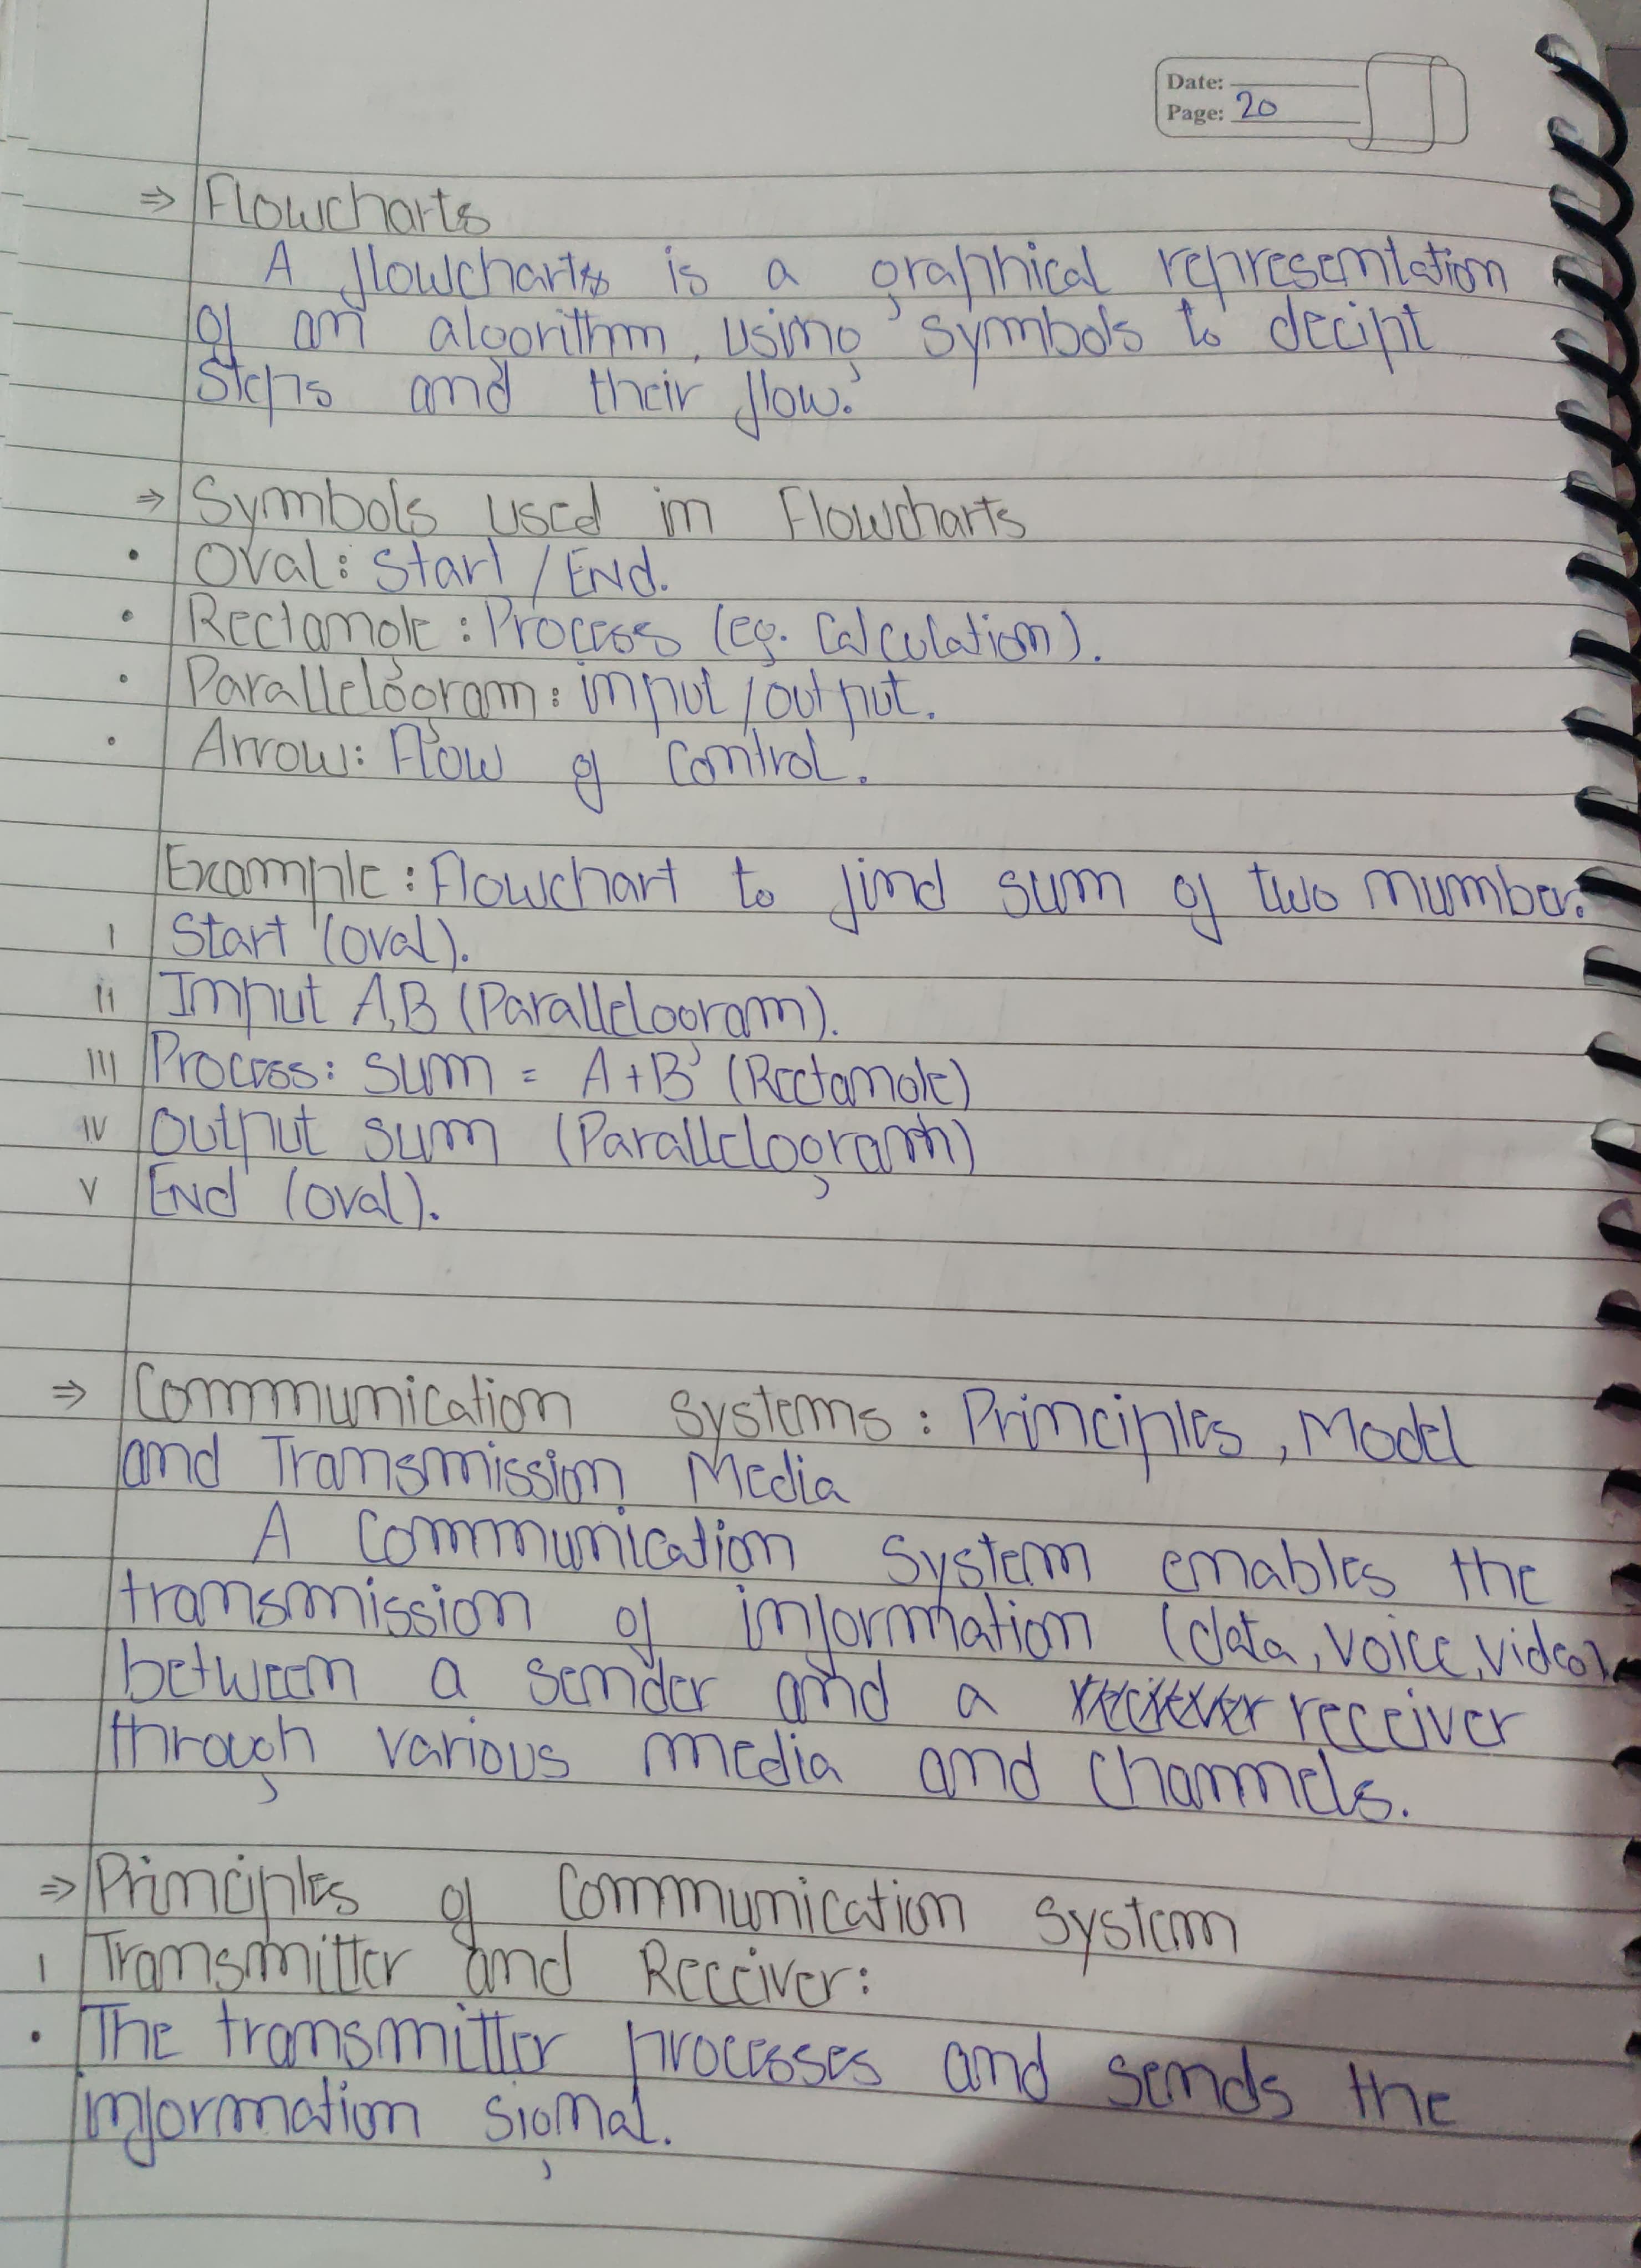 Date:
Page: 20
⇒ Flowcharts
A flowchart is a graphical representation
of an algorithm, using symbols to decipt
steps and their flow.
⇒ Symbols used in Flowcharts
• Oval: Start / End.
• Rectangle: Process (eg. Calculation).
• Parallelogram: input / output.
• Arrow: Flow of Control.
Example: Flowchart to find sum of two number.
I Start (oval).
II Input A,B (Parallelogram).
III Process: sum = A+B (Rectangle)
IV Output sum (Parallelogram)
V End (oval).
⇒ Communication Systems: Principles, Model
and Transmission Media
A Communication System enables the
transmission of information (data, voice, video)
between a sender and a receiver
through various media and channels.
⇒ Principles of Communication System
I Transmitter and Receiver:
• The transmitter processes and sends the
information signal.